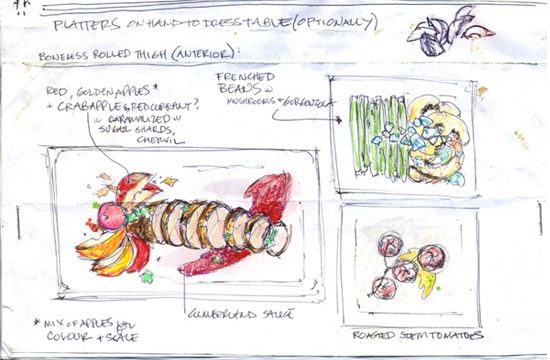 PLATTERS ON HAND TO DRESS TABLE (OPTIONALLY)
BONELESS ROLLED THIGH (ANTERIOR):
RED, GOLDEN APPLES *
+ CRABAPPLE & REDCURRANT?
W CARAMALIZED W
SUGAR SHARDS,
CHERVIL
FRENCHED
BEANS W
MUSHROOMS + GORGONZOLA
CUMBERLAND SAUCE
* MIX OF APPLES FOR
COLOUR + SCALE
ROASTED STEM TOMATOES